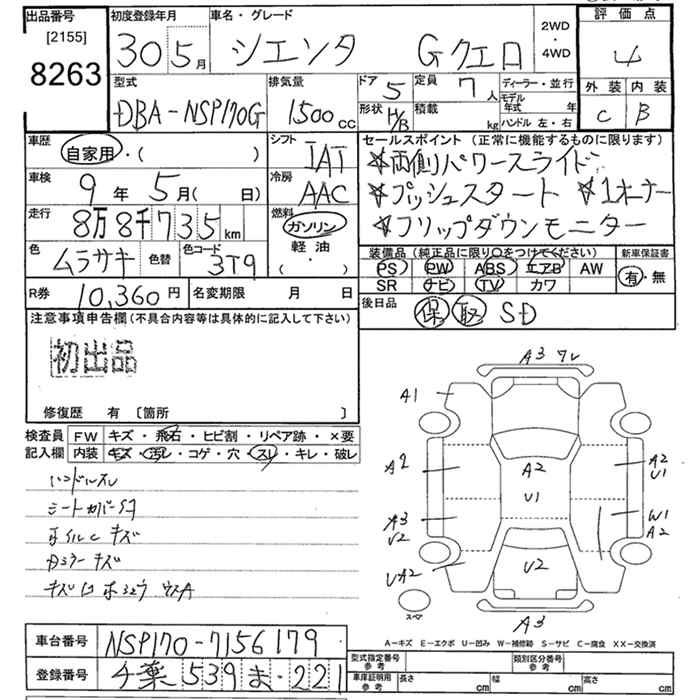 出品番号
[2155]
8263
初度登録年月
30 5月
車名・グレード
シエンタ Gクエロ
2WD
・
4WD
評価点
4
外装 内装
C B
型式
DBA-NSP170G
排気量
1500 cc
ドア 5
定員 7 人
形状 H/B
積載 kg
ディーラー・並行
モデル年式 年
ハンドル 左・右
車歴
自家用・( )
シフト
IAT
車検
9年 5月( 日)
冷房
AAC
走行
8万8千735km
燃料
ガソリン
軽油
( ・ )
色
ムラサキ
色替
色コード
3T9
セールスポイント(正常に機能するものに限ります)
☆両側パワースライド
☆プッシュスタート ☆1オーナー
☆フリップダウンモニター
装備品(純正品に限り○をつけてください)
新車保証書
PS PW ABS エアB AW
SR ナビ TV カワ
有・無
R券 10,360円
名変期限 月 日
後日品 保 取 SD
注意事項申告欄(不具合内容等は具体的に記入して下さい)
初出品
修復歴 有 [箇所 ]
検査員記入欄
FW キズ・飛石・ヒビ割・リペア跡・×要
内装 キズ・汚レ・コゲ・穴・スレ・キレ・破レ
ハンドルスレ
シートカバー付
ホイルc キズ
カミラー キズ
A3
A1
A2 A2 A2
U1 U1
A3 W1
U2 A2
UA2 U2
スペア
A3
A-キズ E-エクボ U-凹み W-補修跡 S-サビ C-腐食 XX-交換済
車台番号 NSP170-7156179
登録番号 千葉 539 ま 221
型式指定番号 参考
類別区分番号 参考
車庫証明用 参考 長さ cm 幅 cm 高さ cm